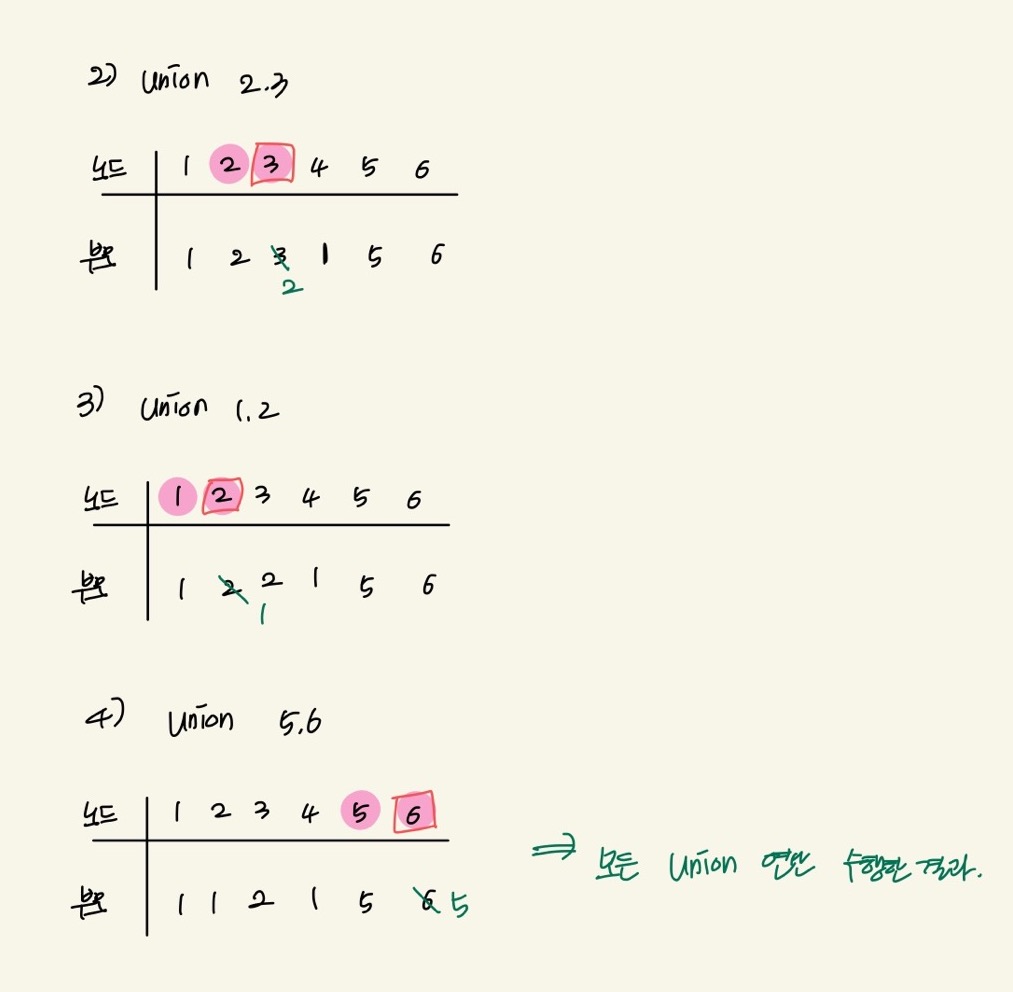 2) Union 2.3
노드 1 2 3 4 5 6
부모 1 2 3 1 5 6
2
3) Union 1.2
노드 1 2 3 4 5 6
부모 1 2 2 1 5 6
1
4) Union 5.6
노드 1 2 3 4 5 6
부모 1 1 2 1 5 6 5
⇒ 모든 Union 연산 수행한 결과.